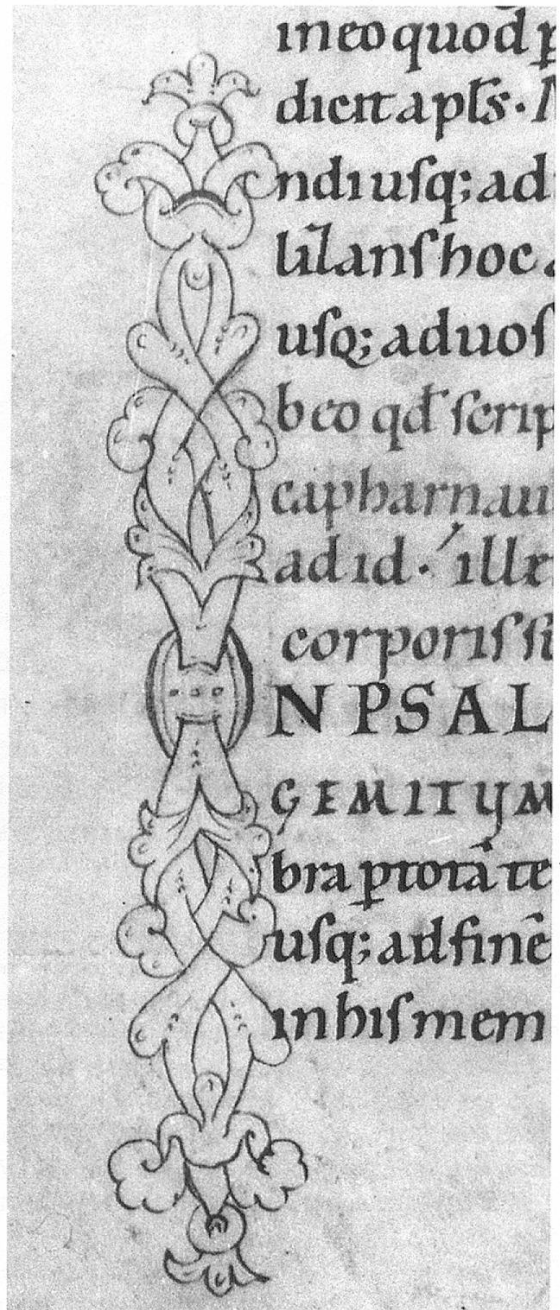 in eo quod p̱
dicit apl̅s · 
ndi usq; ad
lilans hoc
usq; ad uos
beo qđ scrip
capharnau
ad id ·
corporis si
N PSAL
GEMITUM
bra p totā te
usq; ad finē
in his mem